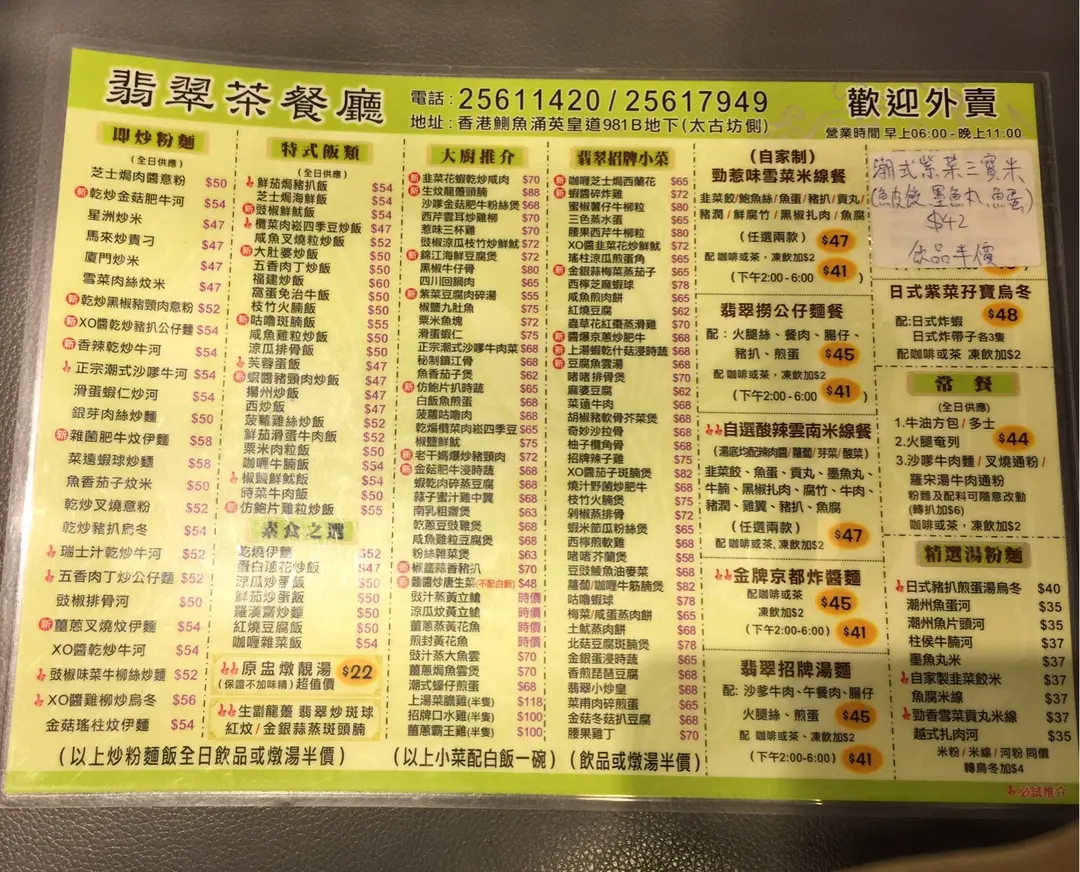 翡翠茶餐廳
電話:25611420/25617949
地址:香港鰂魚涌英皇道981B地下(太古坊側)
歡迎外賣
營業時間 早上06:00-晚上11:00
即炒粉麵
(全日供應)
芝士焗肉醬意粉 $50
新 乾炒金菇肥牛河 $54
星洲炒米 $47
馬來炒貴刁 $47
廈門炒米 $47
雪菜肉絲炆米 $47
新 乾炒黑椒豬頸肉意粉 $52
新 XO醬乾炒豬扒公仔麵 $54
新 香辣乾炒牛河 $54
正宗潮式沙嗲牛河 $54
滑蛋蝦仁炒河 $54
銀芽肉絲炒麵 $50
新 雜菌肥牛炆伊麵 $58
菜遠蝦球炒麵 $58
魚香茄子炆米 $50
乾炒叉燒意粉 $52
乾炒豬扒烏冬 $54
瑞士汁乾炒牛河 $52
五香肉丁炒公仔麵 $52
豉椒排骨河 $50
新 薑蔥叉燒炆伊麵 $54
XO醬乾炒牛河 $54
豉椒味菜牛柳絲炒麵 $52
XO醬雞柳炒烏冬 $56
金菇瑤柱炆伊麵 $54
特式飯類
(全日供應)
鮮茄焗豬扒飯 $54
芝士焗海鮮飯 $54
新 豉椒鮮魷飯 $54
欖菜肉崧四季豆炒飯 $47
咸魚叉燒粒炒飯 $52
新 大肚婆炒飯 $50
五香肉丁炒飯 $50
福建炒飯 $60
窩蛋免治牛飯 $50
枝竹火腩飯 $50
新 咕嚕斑腩飯 $55
咸魚雞粒炒飯 $50
涼瓜排骨飯 $50
芙蓉蛋飯 $47
新 蝦醬豬頸肉炒飯 $50
揚州炒飯 $47
西炒飯 $47
菠蘿雞絲炒飯 $50
鮮茄滑蛋牛肉飯 $50
粟米肉粒飯 $50
咖喱牛腩飯 $54
椒鹽鮮魷飯 $54
時菜牛肉飯 $50
新 仿鮑片雞粒炒飯 $55
素食之選
乾燒伊麵 $52
蛋白蓮花炒飯 $47
涼瓜炒蛋飯 $50
鮮茄炒蛋飯 $50
羅漢齋炒麵 $50
紅燒豆腐飯 $50
咖喱雜菜飯 $54
原盅燉靚湯 $22
(保證不加味精)超值價
生劏龍躉 翡翠炒斑球
紅炆/金銀蒜蒸斑頭腩
(以上炒粉麵飯全日飲品或燉湯半價)
大廚推介
新 韭菜花蝦乾炒咸肉 $70
新 生炆龍躉頭腩 $88
沙嗲金菇肥牛粉絲煲 $68
西芹雲耳炒雞柳 $70
惹味三杯雞 $70
豉椒涼瓜枝竹炒鮮魷 $72
新 錦江海鮮豆腐煲 $72
黑椒牛仔骨 $80
四川回鍋肉 $65
新 紫菜豆腐肉碎湯 $55
椒鹽九肚魚 $75
粟米魚塊 $72
滑蛋蝦仁 $75
正宗潮式沙嗲牛肉菜 $68
秘制鎮江骨 $68
魚香茄子煲 $62
新 仿鮑片扒時蔬 $65
白飯魚煎蛋 $68
菠蘿咕嚕肉 $68
乾煸欖菜肉崧四季豆 $65
椒鹽鮮魷 $75
新 老干媽爆炒豬頸肉 $72
新 金菇肥牛浸時蔬 $68
蝦乾肉碎蒸豆腐 $68
蒜子蜜汁雞中翼 $68
南乳粗齋煲 $63
乾蔥豆豉雞煲 $68
咸魚雞粒豆腐煲 $68
粉絲雜菜煲 $63
新 椒鹽蒜香豬扒 $70
新 麵醬炒唐生菜(不配白飯) $48
豉汁蒸黃立鯧 時價
涼瓜炆黃立鯧 時價
薑蔥蒸黃花魚 時價
煎封黃花魚 時價
豉汁蒸大魚雲 $70
薑蔥焗魚雲煲 $70
潮式蠔仔煎蛋 $68
上湯菜膽雞(半隻) $118
招牌口水雞(半隻) $100
薑蔥霸王雞(半隻) $100
(以上小菜配白飯一碗)
翡翠招牌小菜
新 咖喱芝士焗西蘭花 $65
新 蝦醬碎炸雞 $72
蜜椒薯仔牛柳粒 $80
三色蒸水蛋 $65
腰果西芹牛柳粒 $80
XO醬韭菜花炒鮮魷 $72
瑤柱涼瓜煎蛋角 $65
新 金銀蒜梅菜蒸茄子 $65
西檸芝麻蝦球 $78
咸魚煎肉餅 $65
紅燒豆腐 $62
蟲草花紅棗蒸滑雞 $70
新 醬爆京蔥肥牛 $68
新 上湯蝦乾什菇浸時蔬 $68
新 豆腐魚雲湯 $68
啫啫排骨煲 $70
麻婆豆腐 $62
菜薳牛肉 $68
胡椒豬軟骨芥菜煲 $68
奇妙沙拉骨 $68
柚子欖角骨 $68
招牌辣子雞 $75
XO醬茄子斑腩煲 $82
燒汁野菌炒肥牛 $68
枝竹火腩煲 $75
剁椒蒸排骨 $72
蝦米節瓜粉絲煲 $65
西檸煎軟雞 $68
啫啫芥蘭煲 $58
豆豉鯪魚油麥菜 $68
蘿蔔/咖喱牛筋腩煲 $68
咕嚕蝦球 $78
梅菜/咸蛋蒸肉餅 $65
土魷蒸肉餅 $68
北菇豆腐斑腩煲 $78
金銀蛋浸時蔬 $65
香煎琵琶豆腐 $68
翡翠小炒皇 $68
菜甫肉碎煎蛋 $65
金菇冬菇扒豆腐 $68
腰果雞丁 $70
(飲品或燉湯半價)
(自家制)
勁惹味雪菜米線餐
韭菜餃/鮑魚絲/魚蛋/豬扒/貢丸/
豬潤/鮮腐竹/黑椒扎肉/魚腐
(任選兩款) $47
配 咖啡或茶,凍飲加$2
(下午2:00-6:00 $41 )
翡翠撈公仔麵餐
配:火腿絲、餐肉、腸仔、
豬扒、煎蛋 $45
配 咖啡或茶,凍飲加$2
(下午2:00-6:00) $41
自選酸辣雲南米線餐
(湯底均配辣肉醬/蘿蔔/芽菜/酸菜)
韭菜餃、魚蛋、貢丸、墨魚丸、
牛腩、黑椒扎肉、腐竹、牛肉、
豬潤、雞翼、豬扒、魚腐
(任選兩款) $47
配 咖啡或茶,凍飲加$2
金牌京都炸醬麵
配咖啡或茶
凍飲加$2 $45
(下午2:00-6:00) $41
翡翠招牌湯麵
配:沙嗲牛肉、午餐肉、腸仔
火腿絲、煎蛋 $45
配 咖啡或茶、凍飲加$2
(下午2:00-6:00) $41
潮式紫菜三寶米
(魚皮餃 墨魚丸 魚蛋)
$42
飲品半價
日式紫菜孖寶烏冬
$48
配:日式炸蝦
日式炸帶子各3隻
配咖啡或茶 凍飲加$2
常餐
(全日供應)
1.牛油方包/多士
2.火腿奄列 $44
3.沙嗲牛肉麵/叉燒通粉/
羅宋湯牛肉通粉
粉麵及配料可隨意改動
(轉扒加$6)
咖啡或茶,凍飲加$2
精選湯粉麵
日式豬扒煎蛋湯烏冬 $40
潮州魚蛋河 $35
潮州魚片頭河 $35
柱侯牛腩河 $37
墨魚丸米 $37
自家製韭菜餃米 $37
魚腐米線 $37
勁香雪菜貢丸米線 $37
越式扎肉河 $35
米粉/米線/河粉 同價
轉烏冬加$4
必試推介